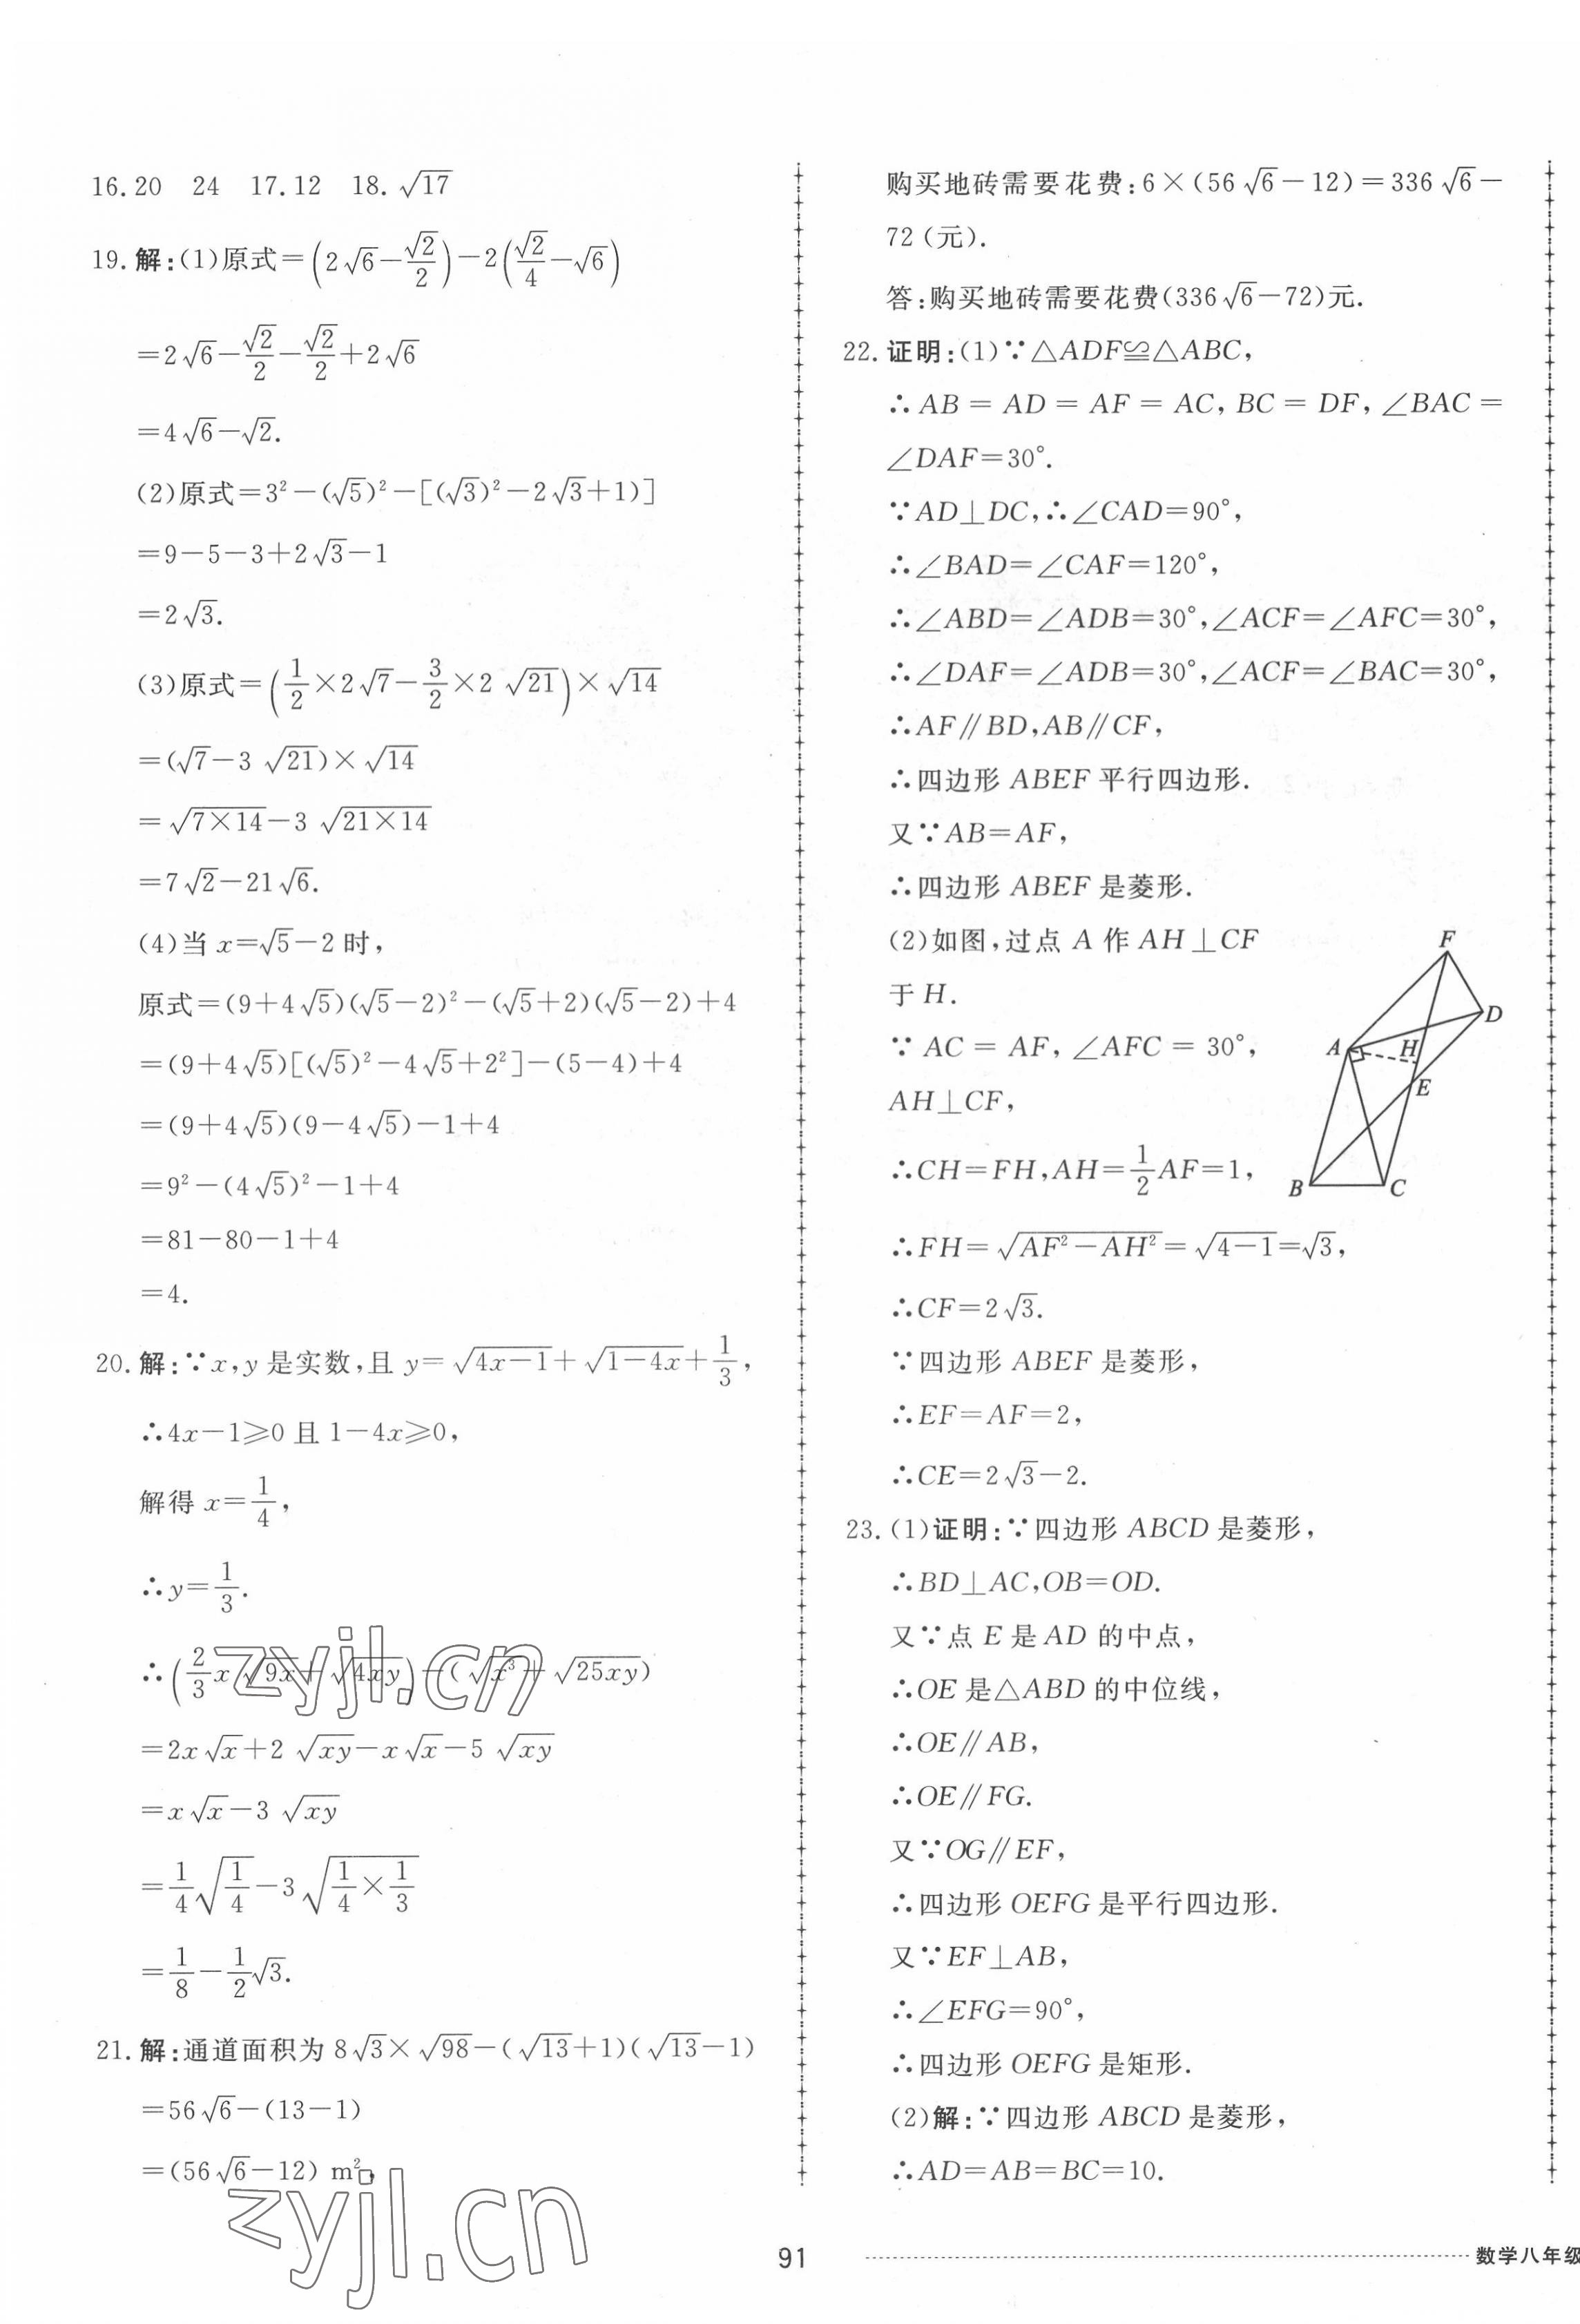 16.20　24　17.12　18.√17
19.解:(1)原式=(2√6-√2/2)-2(√2/4-√6)
=2√6-√2/2-√2/2+2√6
=4√6-√2.
(2)原式=3²-(√5)²-[(√3)²-2√3+1)]
=9-5-3+2√3-1
=2√3.
(3)原式=(1/2×2√7-3/2×2√21)×√14
=(√7-3√21)×√14
=√(7×14)-3√(21×14)
=7√2-21√6.
(4)当x=√5-2时,
原式=(9+4√5)(√5-2)²-(√5+2)(√5-2)+4
=(9+4√5)[(√5)²-4√5+2²]-(5-4)+4
=(9+4√5)(9-4√5)-1+4
=9²-(4√5)²-1+4
=81-80-1+4
=4.
20.解:∵x,y是实数,且y=√(4x-1)+√(1-4x)+1/3,
∴4x-1≥0且1-4x≥0,
解得x=1/4,
∴y=1/3.
∴(2/3x√(9x)+√(4xy))-(√(x³)+√(25xy))
=2x√x+2√(xy)-x√x-5√(xy)
=x√x-3√(xy)
=1/4√(1/4)-3√(1/4×1/3)
=1/8-1/2√3.
21.解:通道面积为8√3×√98-(√13+1)(√13-1)
=56√6-(13-1)
=(56√6-12) m²
购买地砖需要花费:6×(56√6-12)=336√6-
72(元).
答:购买地砖需要花费(336√6-72)元.
22.证明:(1)∵△ADF≌△ABC,
∴AB=AD=AF=AC,BC=DF,∠BAC=
∠DAF=30°.
∵AD⊥DC,∴∠CAD=90°,
∴∠BAD=∠CAF=120°,
∴∠ABD=∠ADB=30°,∠ACF=∠AFC=30°,
∴∠DAF=∠ADB=30°,∠ACF=∠BAC=30°,
∴AF∥BD,AB∥CF,
∴四边形ABEF平行四边形.
又∵AB=AF,
∴四边形ABEF是菱形.
(2)如图,过点A作AH⊥CF
于H.
∵AC=AF,∠AFC=30°,
AH⊥CF,
∴CH=FH,AH=1/2AF=1,
∴FH=√(AF²-AH²)=√(4-1)=√3,
∴CF=2√3.
∵四边形ABEF是菱形,
∴EF=AF=2,
∴CE=2√3-2.
F
D
A
H
E
B
C
23.(1)证明:∵四边形ABCD是菱形,
∴BD⊥AC,OB=OD.
又∵点E是AD的中点,
∴OE是△ABD的中位线,
∴OE∥AB,
∴OE∥FG.
又∵OG∥EF,
∴四边形OEFG是平行四边形.
又∵EF⊥AB,
∴∠EFG=90°,
∴四边形OEFG是矩形.
(2)解:∵四边形ABCD是菱形,
∴AD=AB=BC=10.
zyjl.cn
zyjl.cn
91
数学八年级